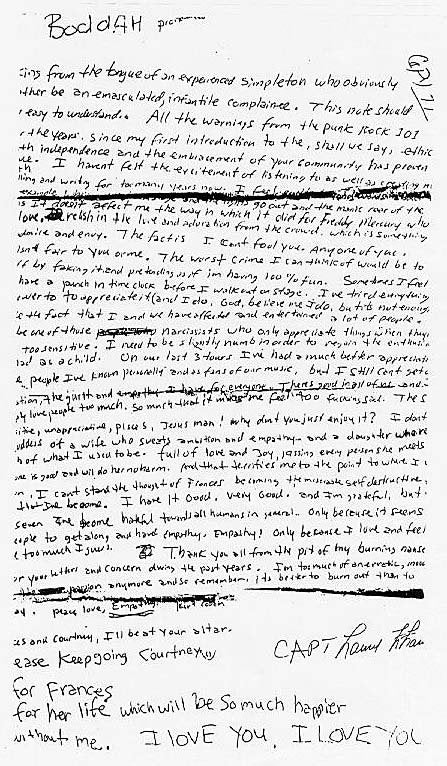 BoddAH
ing from the tongue of an experienced simpleton who obviously
ther be an emasculated, infantile complainee. This note should
easy to understand. All the warnings from the punk rock 101
the years. Since my first introduction to the, shall we say, ethic
th independence and the embracement of your community has proven
I havent felt the excitement of listening to as well as creating
and writing for too many years now. I feel
go out and the manic roar of the
doesnt affect me the way in which it did for Freddy Mercury who
love, relish in the love and adoration from the crowd. which is something
admire and envy. The fact is I Cant fool you. Any one of you.
isnt fair to you or me. The worst crime I can think of would be to
by faking it and pretending as if im having 100% fun. Sometimes I feel
have a punch in time clock before I walk out on stage. I've tried everything
power to appreciate it (and I do. God, believe me I do, but its not enough)
the fact that I and we have affected and entertained a lot of people.
be one of those narcissists who only appreciate things when they
too sensitive. I need to be slightly numb in order to regain the enthusia
had as a child. On our last 3 tours I've had a much better appreciati
people I've known personally and as fans of our music, but I still cant get
the guilt and empathy I have for everyone. There's good in all of us and
ly love people too much. So much that it makes me feel too fucking sad. The
itive, unappreciative, pisces, Jesus man! why dont you just enjoy it? I dont
goddess of a wife who sweats ambition and empathy and a daughter who re
of what I use to be. full of love and Joy, kissing every person she meets
one is good and will do her no harm. And that terrifies me to the point to where I
I cant stand the thought of Frances becoming the miserable self destructive,
that Ive become. I have it Good. very Good. and Im grateful, but
seven Ive become hateful towards all humans in general. Only because it seems
eople to get along and have empathy. Empathy! Only because I love and feel
too much I guess. Thank you all from the pit of my burning nause
your letters and concern during the past years. I'm too much of an erratic, moo
passion anymore and so remember, its better to burn out than to
peace, love, Empathy. kurt cobain
es and Courtney, I'll be at your altar.
ease Keep going Courtney
CAPT
for Frances
for her life which will be so much happier
without me. I LOVE YOU, I LOVE YOU